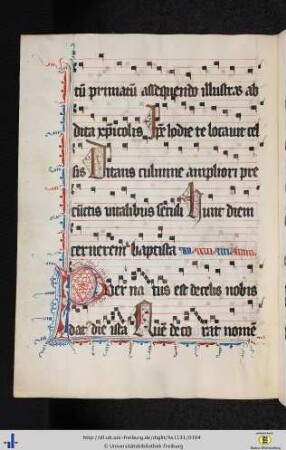 tū primatū assequendo illustras ab
dita xp̄icolis Ip̄e hodie te locavit cel
sis Ditans culmine ampliori pre
cūctis vitalibus seculi Hunc diem
cernerene baptista
Puer na tus est de celis nobis
dat die ista deco rat nomē
http://dl.ub.uni-freiburg.de/diglit/hs1131/0304
© Universitätsbibliothek Freiburg